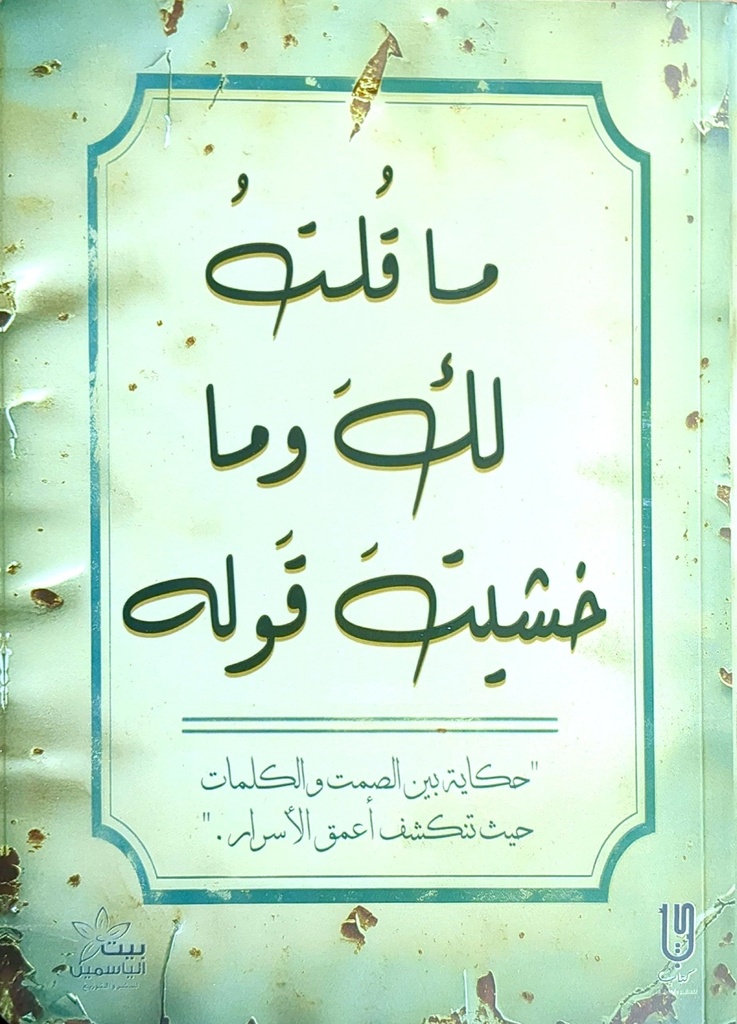 ما قُلتُ
لكَ وما
خشيتَ قَوله
"حكاية بين الصمت والكلمات
حيث تنكشف أعمق الأسرار."
بيت
الياسمين
للنشر والتوزيع
كتاب